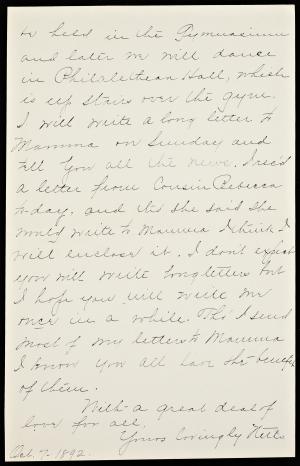 to held in the Gymnasium
and later we will dance
in Philalethean Hall, which
is up stairs over the gym.
I will write a long letter to
Mamma on Sunday and
tell you all the news. I rec'd
a letter from Cousin Rebecca
to-day, and tho' she said she
would write to Mamma I think I
will enclose it. I don't expect
you will write long letters but
I hope you will write me
once in a while. Tho' I send
most of my letters to Mamma
I know you all have the benefit
of them.
With a great deal of
love for all,
Yours lovingly
Oct. 7. 1892.